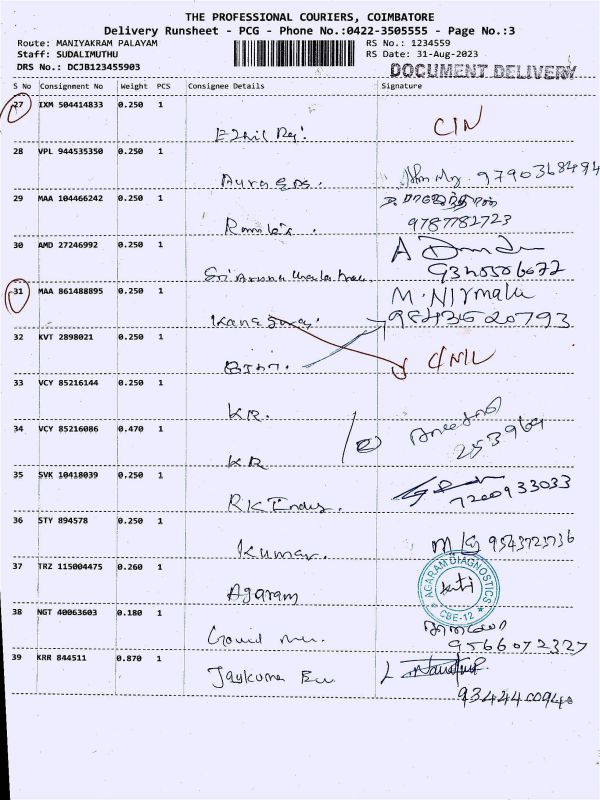 THE PROFESSIONAL COURIERS, COIMBATORE
Delivery Runsheet - PCG - Phone No.:0422-3505555 - Page No.:3
Route: MANIYAKRAM PALAYAM
RS No.: 1234559
Staff: SUDALIMUTHU
RS Date: 31-Aug-2023
DRS No.: DCJB123455903
DOCUMENT DELIVERY
S No Consignment No Weight PCS Consignee Details Signature
27 IXM 504414833 0.250 1
28 VPL 944535350 0.250 1
9790368494
29 MAA 104466242 0.250 1
9787782723
30 AMD 27246992 0.250 1
A
31 MAA 861488895 0.250 1
M. Nirmala
9843520793
32 KVT 2898021 0.250 1
33 VCY 85216144 0.250 1
KR.
34 VCY 85216086 0.470 1
KR
35 SVK 10418039 0.250 1
RK Indus.
7200933033
36 STY 894578 0.250 1
Kumar.
37 TRZ 115004475 0.260 1
Agaram
AGARAM DIAGNOSTICS
CBE-12
38 NGT 40063603 0.180 1
9566072327
39 KRR 844511 0.870 1